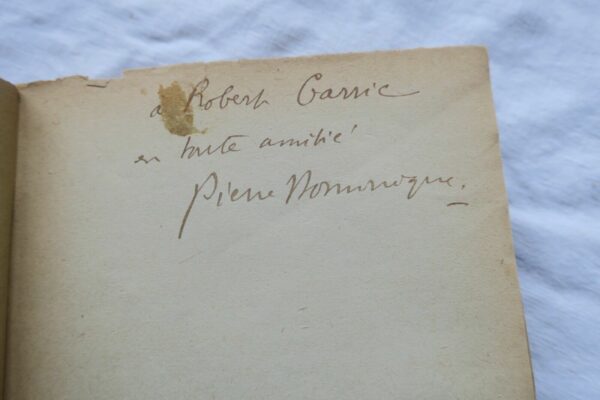 à Robert Garric
en toute amitié
Pierre Dominique.